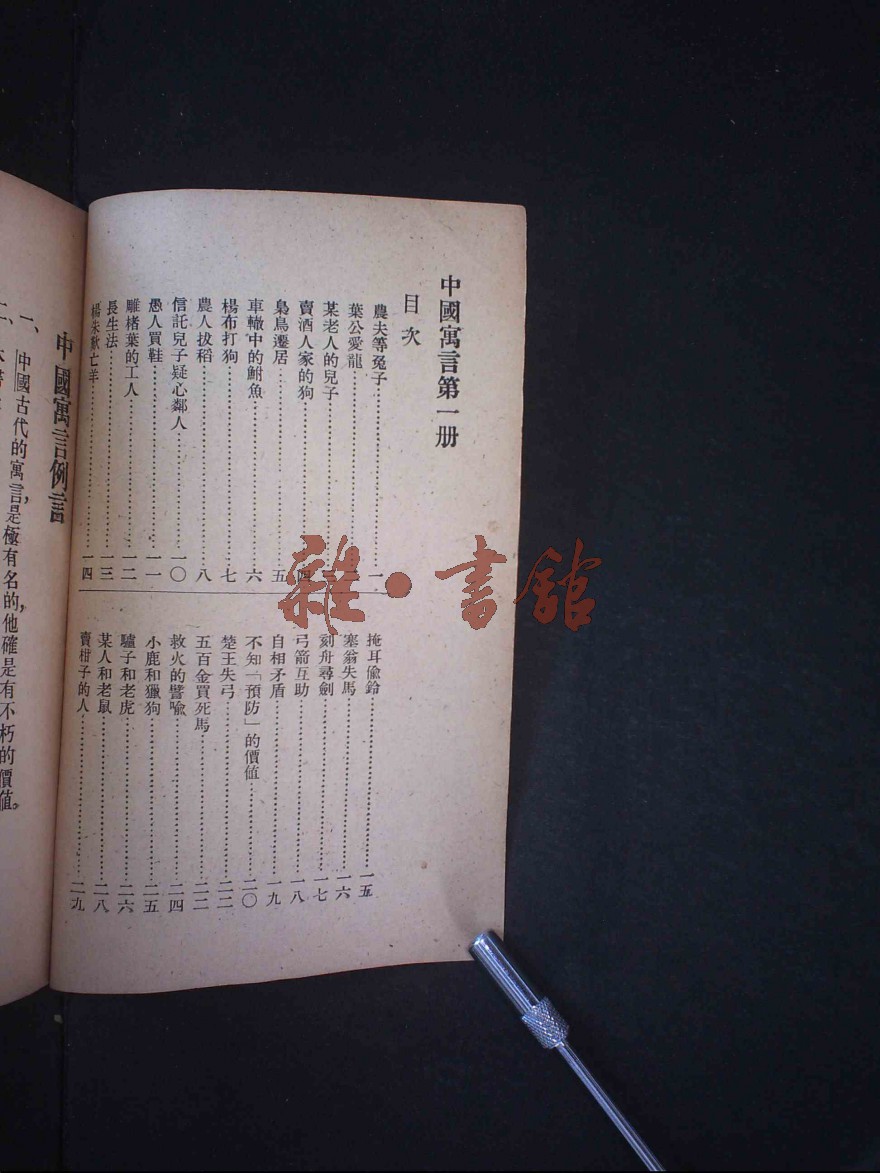 中國寓言第一册
目次
農夫等兔子……一
葉公愛龍……二
某老人的兒子……三
賣酒人家的狗……四
梟鳥遷居……五
車轍中的鮒魚……六
楊布打狗……七
農人拔稻……八
信託兒子疑心鄰人……一〇
愚人買鞋……一一
雕楮葉的工人……一二
長生法……一三
楊朱歎亡羊……一四
掩耳偸鈴……一五
塞翁失馬……一六
刻舟尋劍……一七
弓箭互助……一八
自相矛盾……一九
不知「預防」的價値……二〇
楚王失弓……二二
五百金買死馬……二三
救火的譬喩……二四
小鹿和獵狗……二五
驢子和老虎……二六
某人和老鼠……二八
賣柑子的人……二九
中國寓言例言
一、中國古代的寓言,是極有名的,他確是有不朽的價値。
二、本書
雜·書館